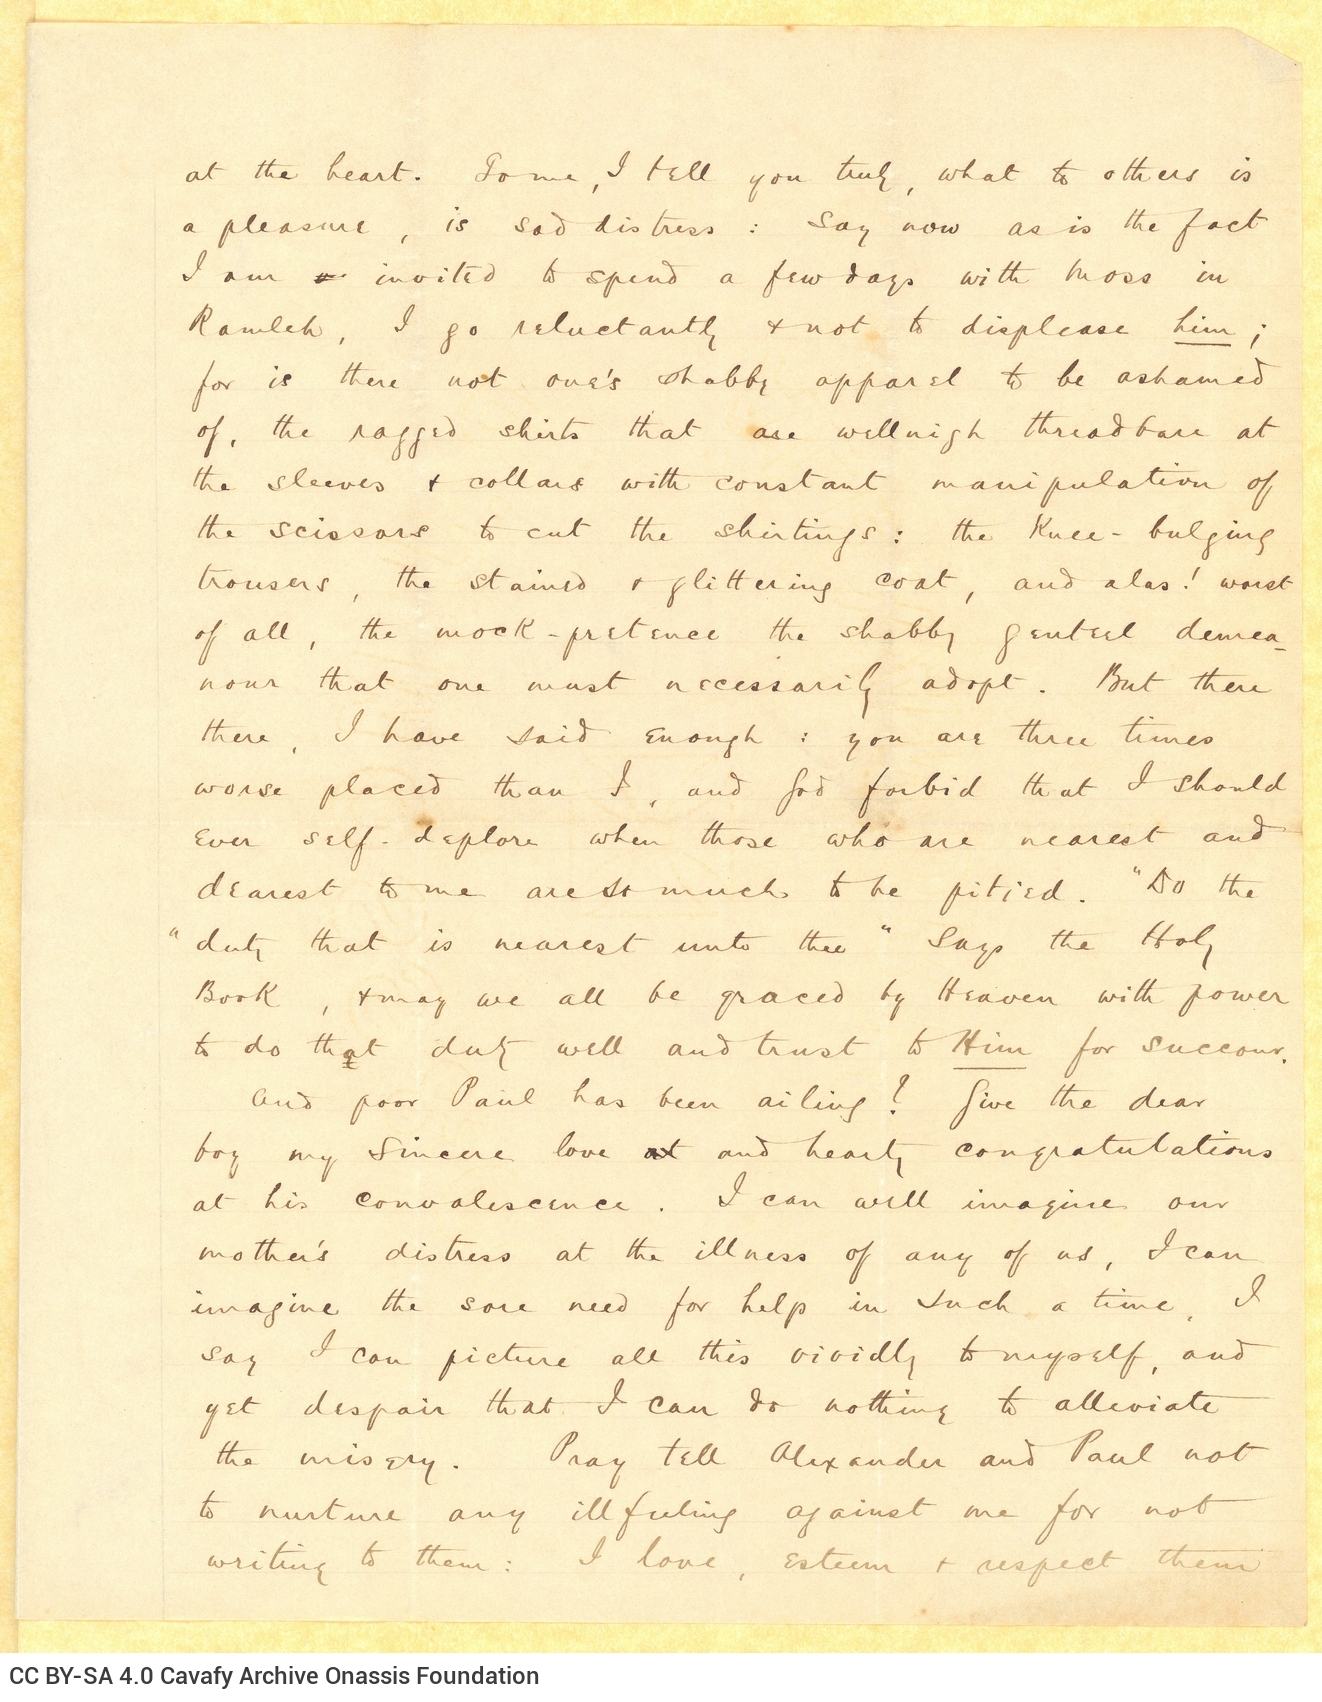 at the heart. To me, I tell you truly, what to others is
a pleasure, is sad distress: Say now as is the fact
I am invited to spend a few days with Moss in
Ramleh, I go reluctantly & not to displease him;
for is there not one's shabby apparel to be ashamed
of, the ragged shirts that are wellnigh threadbare at
the sleeves & collars with constant manipulation of
the scissors to cut the shirtings: the Knee-bulging
trousers, the stained & glittering coat, and alas! worst
of all, the mock-pretence the shabby genteel demea-
nour that one must necessarily adopt. But there
there, I have said enough: you are three times
worse placed than I, and God forbid that I should
ever self-deplore when those who are nearest and
dearest to me are so much to be pitied. "Do the
"duty that is nearest unto thee" Says the Holy
Book, & may we all be graced by Heaven with power
to do that duty well and trust to Him for succour.
And poor Paul has been ailing? Give the dear
boy my Sincere love at and hearty congratulations
at his convalescence. I can well imagine our
mother's distress at the illness of any of us, I can
imagine the sore need for help in such a time, I
say I can picture all this vividly to myself, and
yet despair that I can do nothing to alleviate
the misery. Pray tell Alexander and Paul not
to nurture any illfeeling against me for not
writing to them: I love, esteem & respect them
CC BY-SA 4.0 Cavafy Archive Onassis Foundation